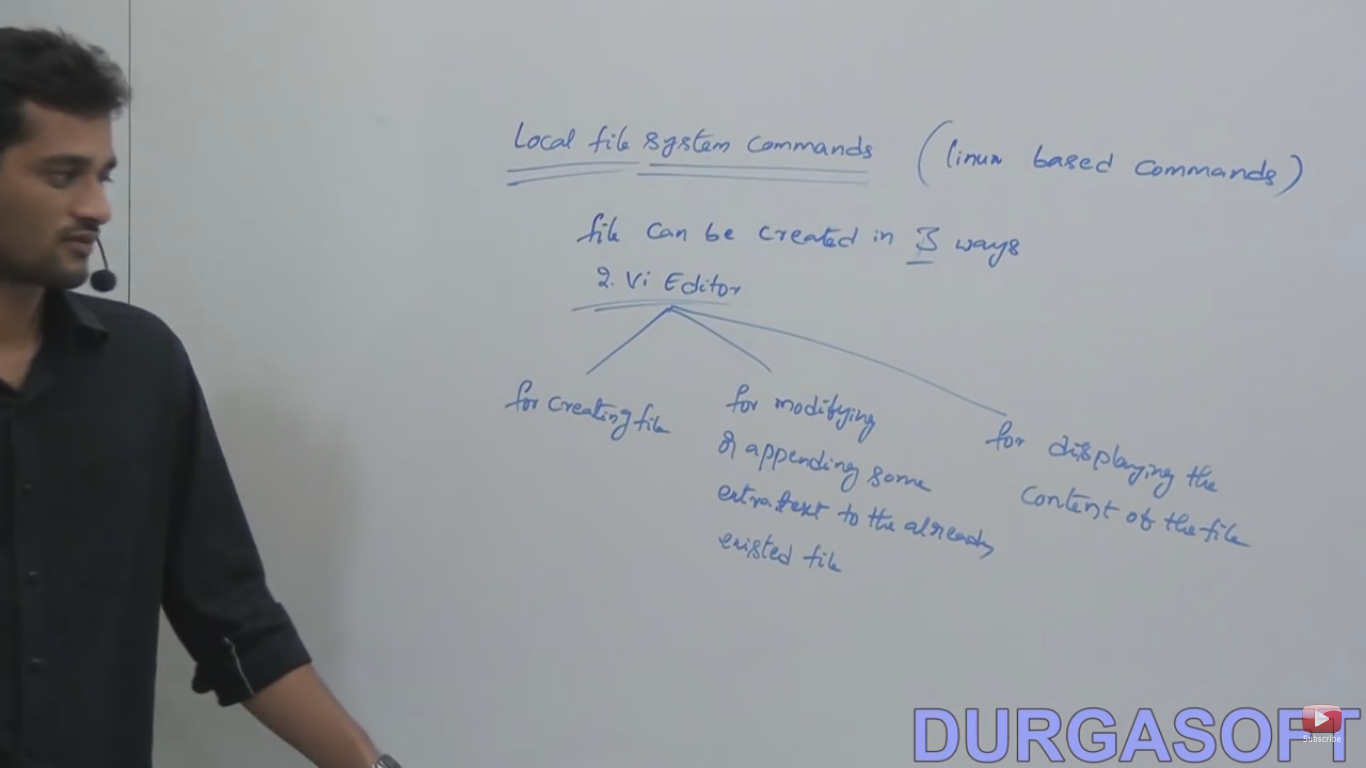 Local file system commands (linux based commands)
file can be created in 3 ways
2. Vi Editor
for creating file
for modifying
or appending some
extra text to the already
existed file
for displaying the
content of the file
DURGASOFT
Subscribe